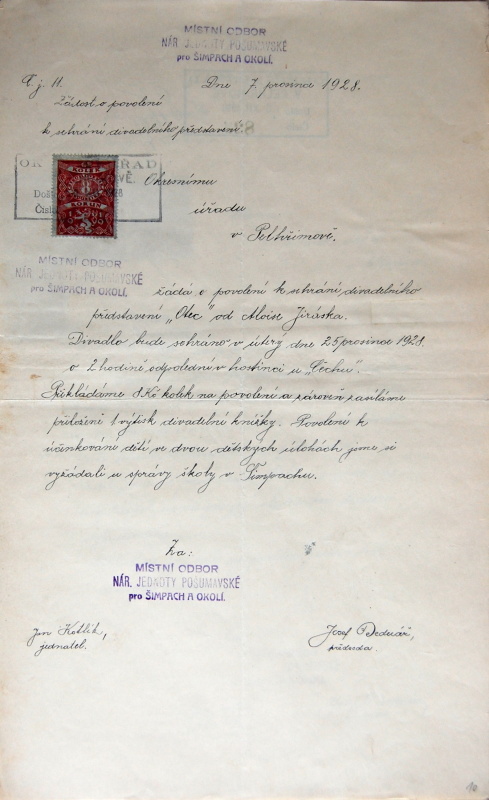 MÍSTNÍ ODBOR
NÁR. JEDNOTY POŠUMAVSKÉ
pro ŠIMPACH A OKOLÍ.
Č. j. 11.
Dne 7. prosince 1928.
Žádost o povolení
k sehrání divadelního představení.
KOLEK
8
KORUN
Okresnímu
úřadu
v Pelhřimově.
MÍSTNÍ ODBOR
NÁR. JEDNOTY POŠUMAVSKÉ
pro ŠIMPACH A OKOLÍ.
žádá o povolení k sehrání divadelního
představení „Otec" od Aloise Jiráska.
Divadlo bude sehráno v úterý dne 25 prosince 1928.
o 2 hodině odpolední v hostinci u „Čechů".
Přikládáme 8 Kč kolek na povolení a zároveň zasíláme
přiložené 1 výtisk divadelní knížky. Povolení k
účinkování dětí ve dvou dětských úlohách jsme si
vyžádali u správy školy v Šimpachu.
Za:
MÍSTNÍ ODBOR
NÁR. JEDNOTY POŠUMAVSKÉ
pro ŠIMPACH A OKOLÍ.
Jan Kotlík,
jednatel.
Josef Bednář,
předseda.
10